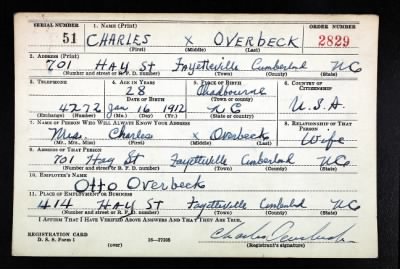 SERIAL NUMBER 1. NAME (Print) ORDER NUMBER
51 CHARLES X OVERBECK 2829
(First) (Middle) (Last)
2. ADDRESS (Print)
701 HAY ST Fayetteville Cumberland NC
(Number and street or R. F. D. number) (Town) (County) (State)
3. TELEPHONE 4. AGE IN YEARS 5. PLACE OF BIRTH 6. COUNTRY OF CITIZENSHIP
28 Chadbourne
DATE OF BIRTH (Town or county)
4272 Jan 16 1912 NC U.S.A.
(Mo.) (Day) (Yr.) (State or country)
7. NAME OF PERSON WHO WILL ALWAYS KNOW YOUR ADDRESS 8. RELATIONSHIP OF THAT PERSON
Mrs. Charles X Overbeck Wife
(Mr., Mrs., Miss) (First) (Middle) (Last)
9. ADDRESS OF THAT PERSON
701 Hay St Fayetteville Cumberland NC
(Number and street or R. F. D. number) (Town) (County) (State)
10. EMPLOYER'S NAME
Otto Overbeck
11. PLACE OF EMPLOYMENT OR BUSINESS
414 HAY ST Fayetteville Cumberland NC
(Number and street or R. F. D. number) (Town) (County) (State)
I AFFIRM THAT I HAVE VERIFIED ABOVE ANSWERS AND THAT THEY ARE TRUE.
REGISTRATION CARD Charles Overbeck
D. S. S. Form 1 (over) 16—17105 (Registrant's signature)